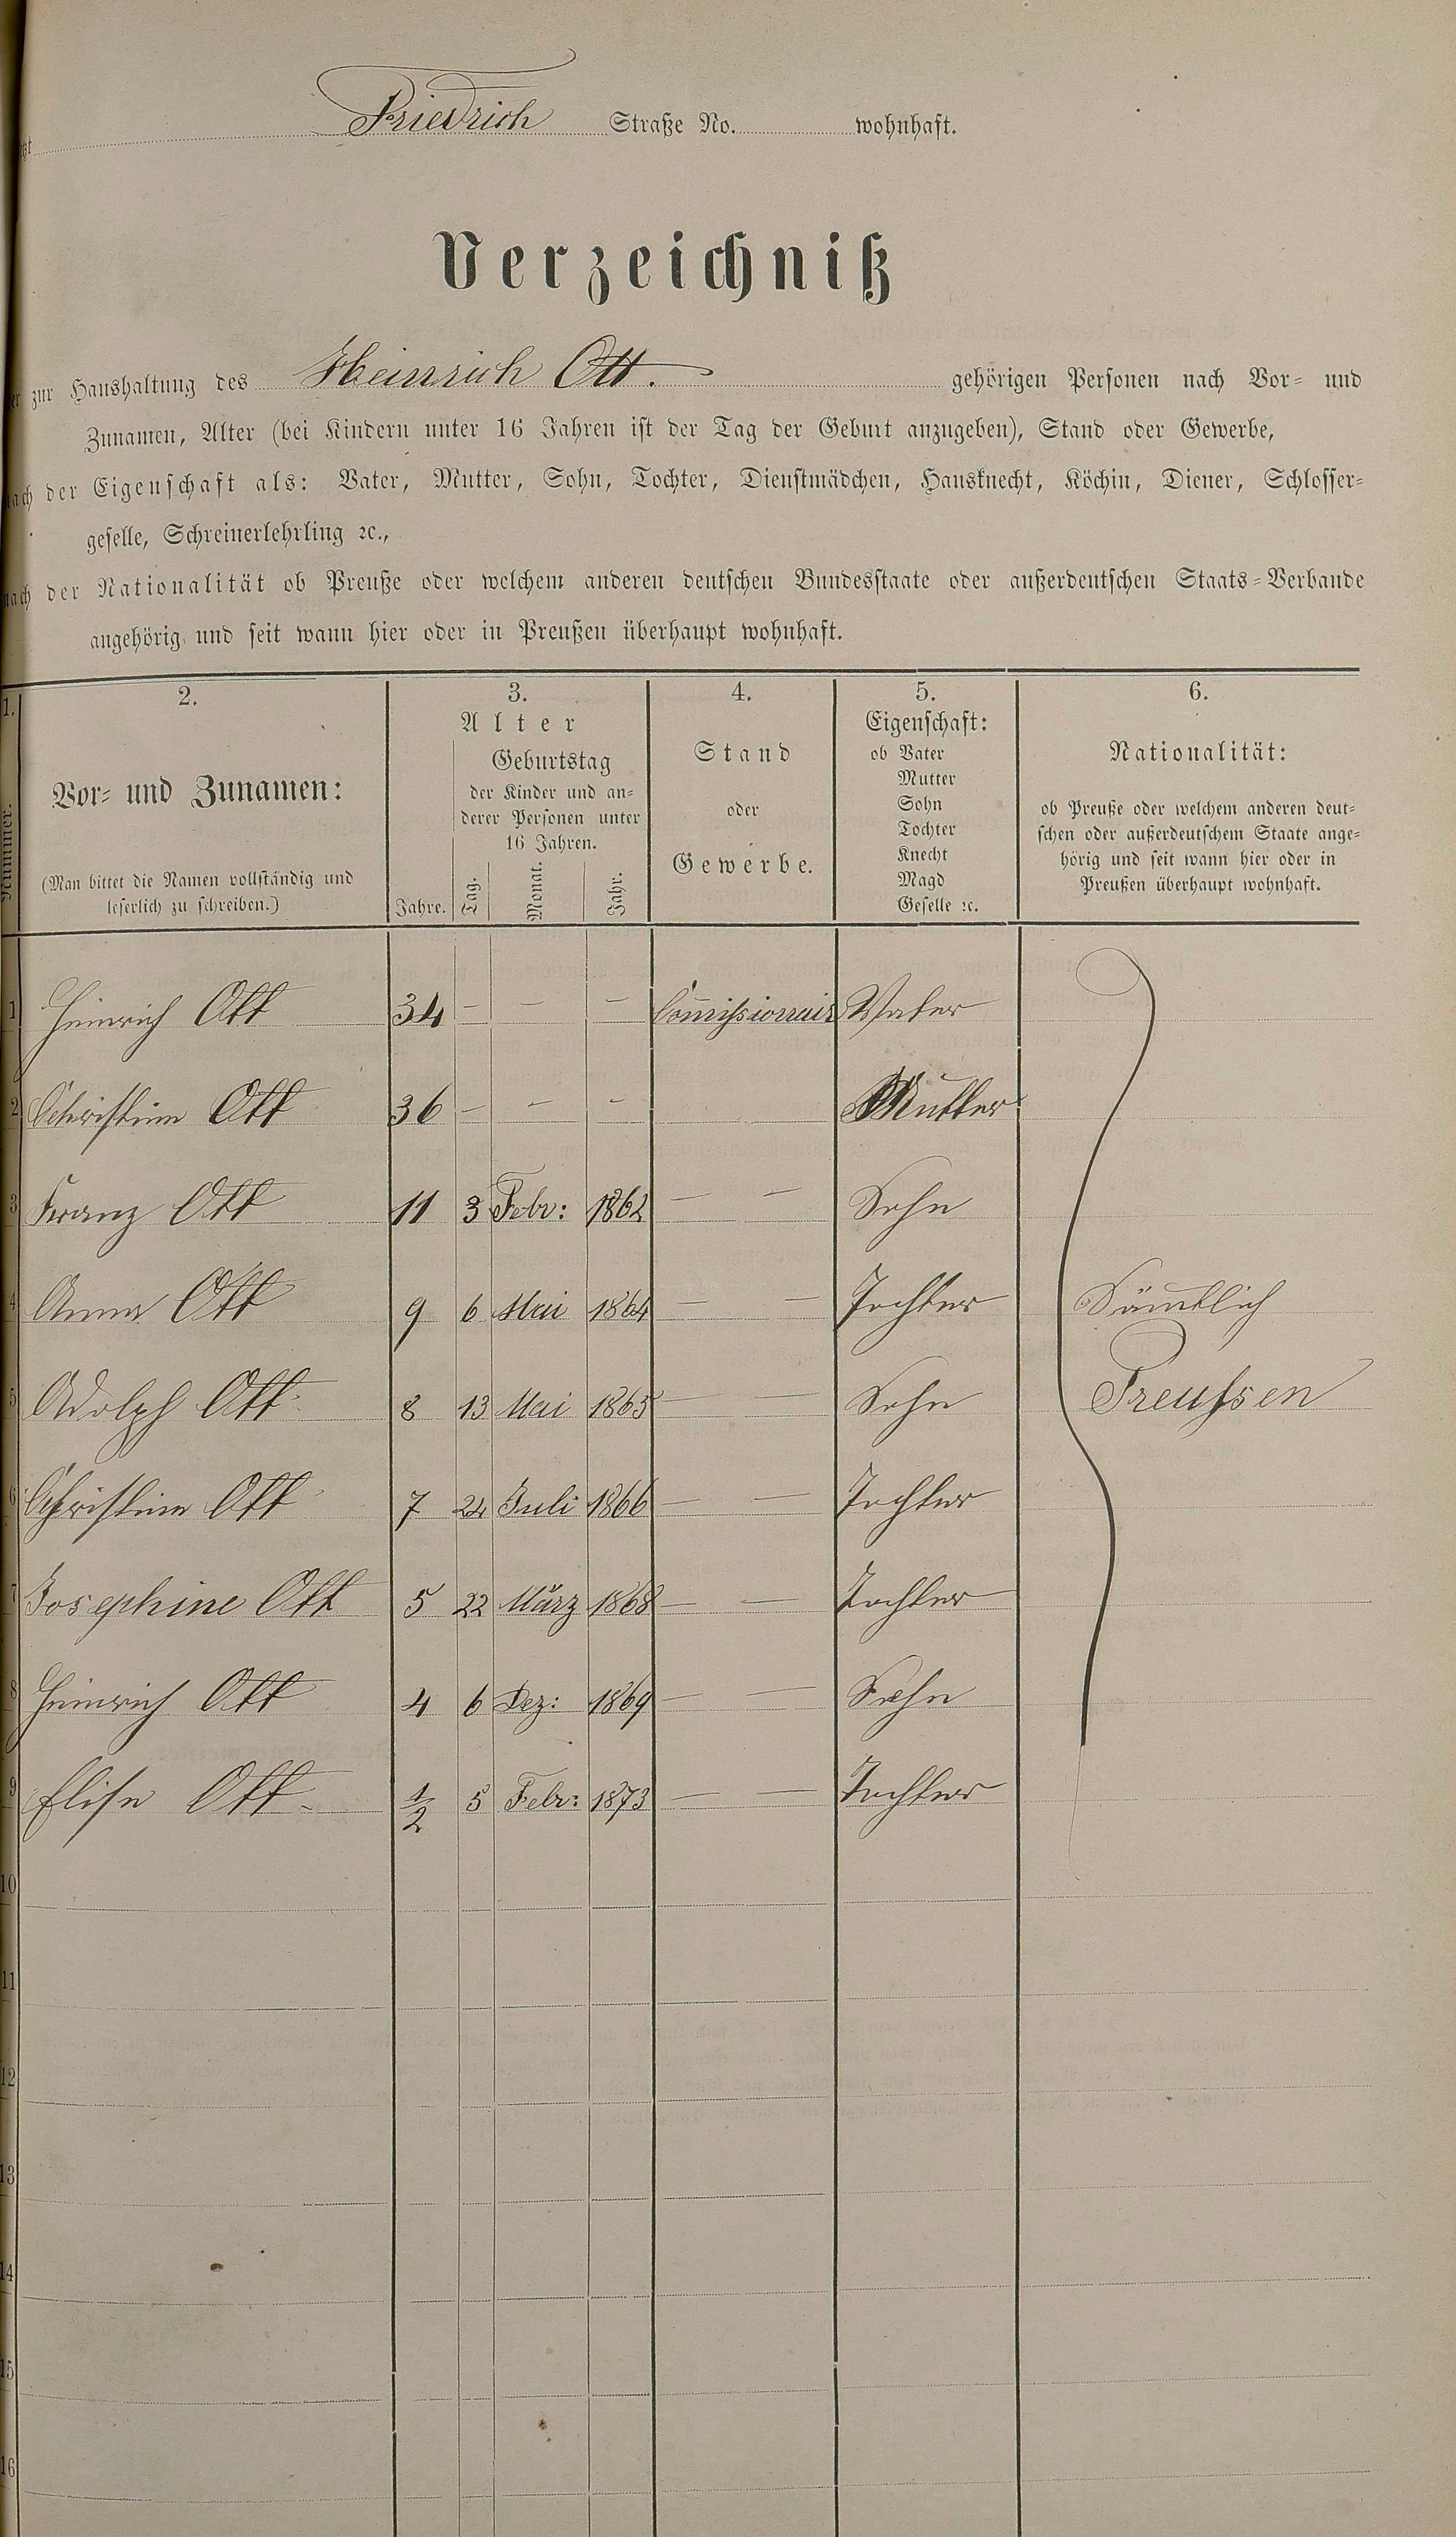 Friedrich Straße No. wohnhaft.
Verzeichniß
zur Haushaltung des Heinrich Ott. gehörigen Personen nach Vor- und
Zunamen, Alter (bei Kindern unter 16 Jahren ist der Tag der Geburt anzugeben), Stand oder Gewerbe,
nach der Eigenschaft als: Vater, Mutter, Sohn, Tochter, Dienstmädchen, Hausknecht, Köchin, Diener, Schlosser-
geselle, Schreinerlehrling ꝛc.,
nach der Nationalität ob Preuße oder welchem anderen deutschen Bundesstaate oder außerdeutschen Staats-Verbande
angehörig und seit wann hier oder in Preußen überhaupt wohnhaft.
1. 2. 3. 4. 5. 6.
Nummer.
Vor- und Zunamen:
(Man bittet die Namen vollständig und
leserlich zu schreiben.)
Alter
Jahre.
Geburtstag
der Kinder und an-
derer Personen unter
16 Jahren.
Tag. Monat. Jahr.
Stand
oder
Gewerbe.
Eigenschaft:
ob Vater
Mutter
Sohn
Tochter
Knecht
Magd
Geselle ꝛc.
Nationalität:
ob Preuße oder welchem anderen deut-
schen oder außerdeutschem Staate ange-
hörig und seit wann hier oder in
Preußen überhaupt wohnhaft.
1 Heinrich Ott 34 – – – Commissionair Vater
2 Christine Ott 36 – – – Mutter
3 Franz Ott 11 3 Febr: 1862 – – Sohn
4 Anna Ott 9 6 Mai 1864 – – Tochter Sämtlich
5 Adolph Ott 8 13 Mai 1865 – – Sohn Preußen
6 Christine Ott 7 24 Juli 1866 – – Tochter
7 Josephine Ott 5 22 März 1868 – – Tochter
8 Heinrich Ott 4 6 Dez: 1869 – – Sohn
9 Elise Ott 1/2 5 Febr: 1873 – – Tochter
10
11
12
13
14
15
16